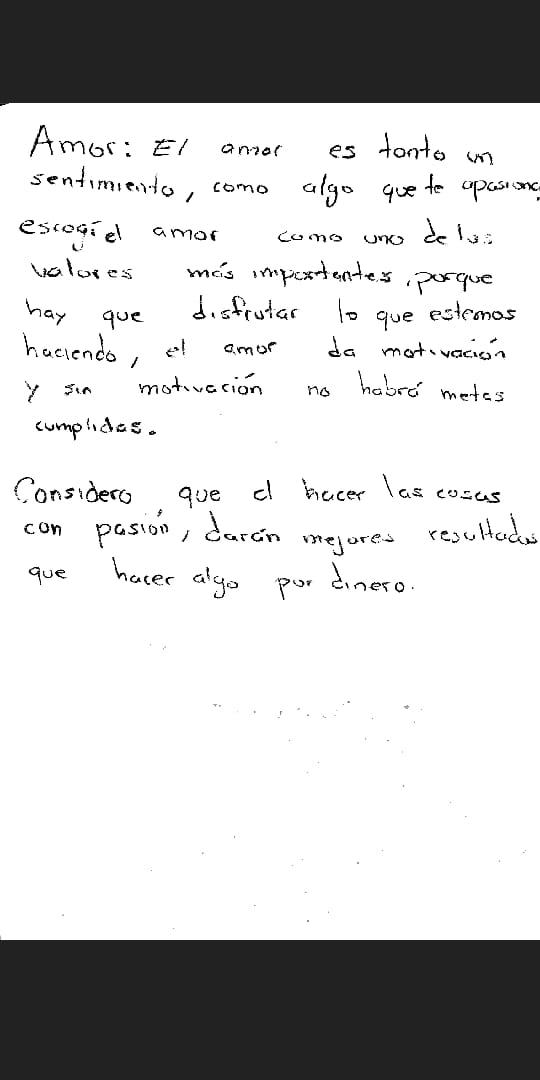 Amor: El amor es tanto un
sentimiento, como algo que te apasiona,
escogí el amor como uno de los
valores más importantes, porque
hay que disfrutar lo que estemos
haciendo, el amor da motivación
y sin motivación no habrá metas
cumplidas.
Considero que el hacer las cosas
con pasión, darán mejores resultados
que hacer algo por dinero.